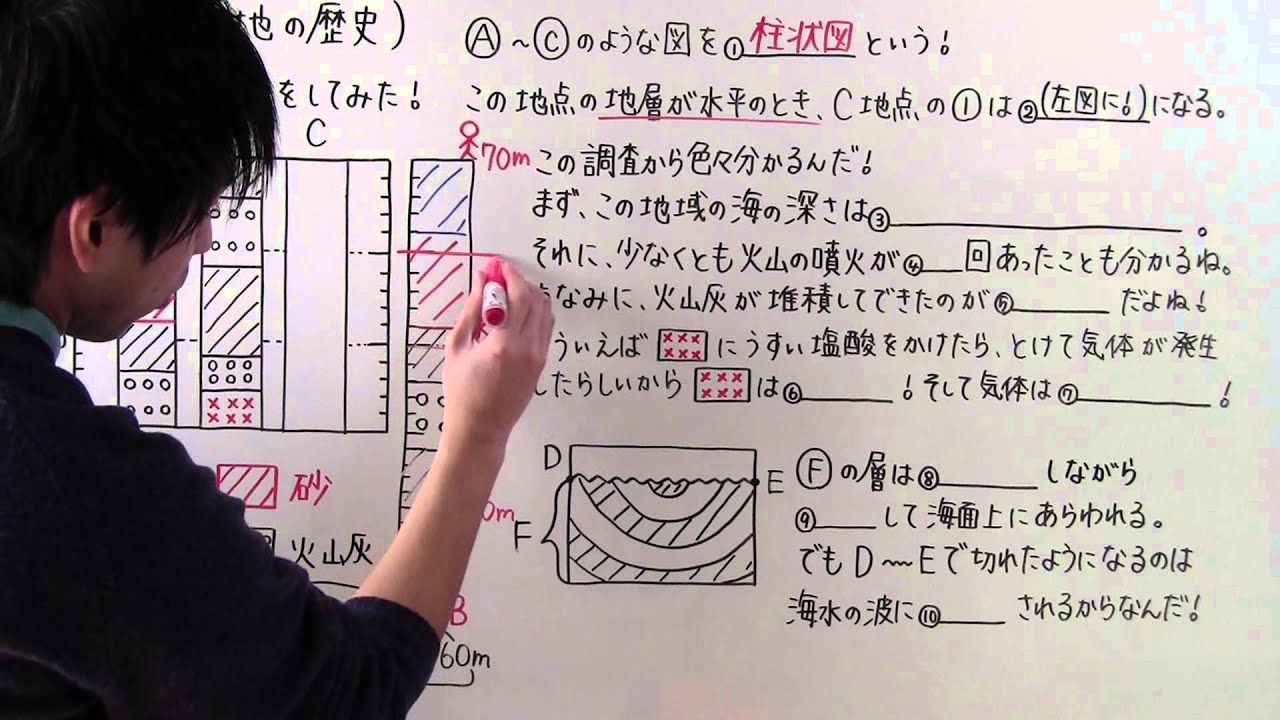 地の歴史)
をしてみた!
C
Ⓐ~Ⓒのような図を①柱状図という!
この地点の地層が水平のとき、C地点の①は②(左図に!)になる。
70m
この調査から色々分かるんだ!
まず、この地域の海の深さは③ 。
それに、少なくとも火山の噴火が④ 回あったことも分かるね。
なみに、火山灰が堆積してできたのが⑤ だよね!
ういえば にうすい塩酸をかけたら、とけて気体が発生
したらしいから は⑥ !そして気体は⑦ !
砂
火山灰
0m
B
60m
D
E
F
Ⓕの層は⑧ しながら
⑨ して海面上にあらわれる。
でもD〰Eで切れたようになるのは
海水の波に⑩ されるからなんだ!